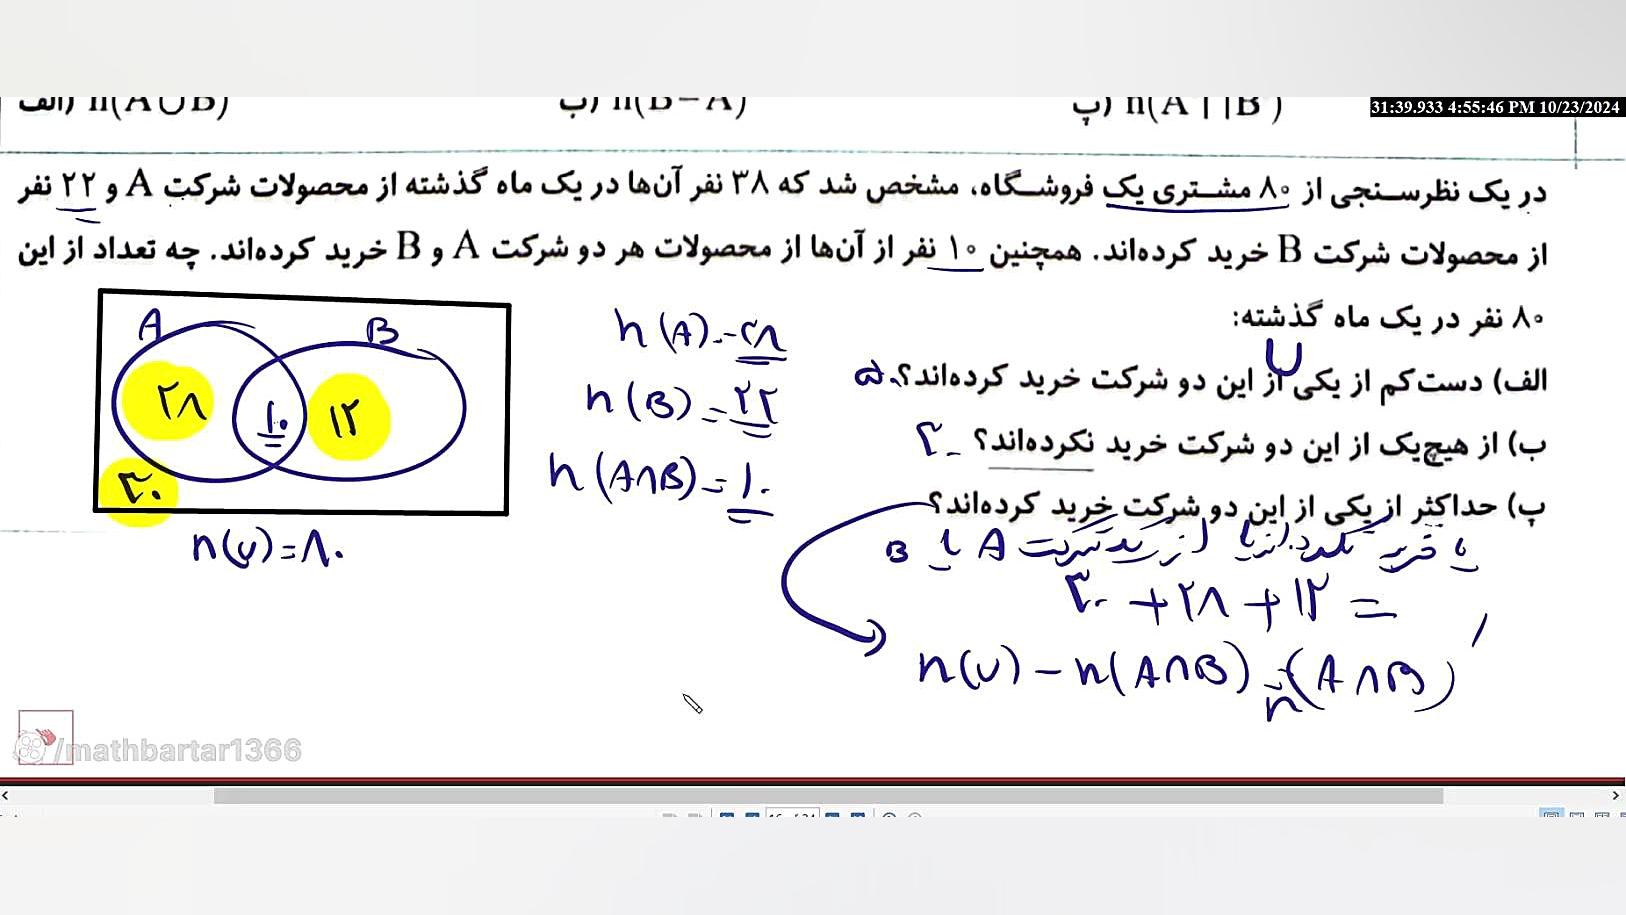 31:39.933 4:55:46 PM 10/23/2024
الف) n(A∪B) ب) n(B−A) پ) n(A∩B')
در یک نظرسنجی از ۸۰ مشتری یک فروشگاه، مشخص شد که ۳۸ نفر آن‌ها در یک ماه گذشته از محصولات شرکت A و ۲۲ نفر
از محصولات شرکت B خرید کرده‌اند. همچنین ۱۰ نفر از آن‌ها از محصولات هر دو شرکت A و B خرید کرده‌اند. چه تعداد از این
۸۰ نفر در یک ماه گذشته:
الف) دست‌کم از یکی از این دو شرکت خرید کرده‌اند؟ ۵۰
∪
ب) از هیچ‌یک از این دو شرکت خرید نکرده‌اند؟ ۳۰
پ) حداکثر از یکی از این دو شرکت خرید کرده‌اند؟
یا خرید نکرده‌اند یا از یک شرکت A یا B
۳۰ + ۲۸ + ۱۲ =
n(U) − n(A∩B) = n(A∩B)'
A B
۲۸ ۱۰ ۱۲
۳۰
n(U) = ۸۰
n(A) = ۳۸
n(B) = ۲۲
n(A∩B) = ۱۰
/mathbartar1366